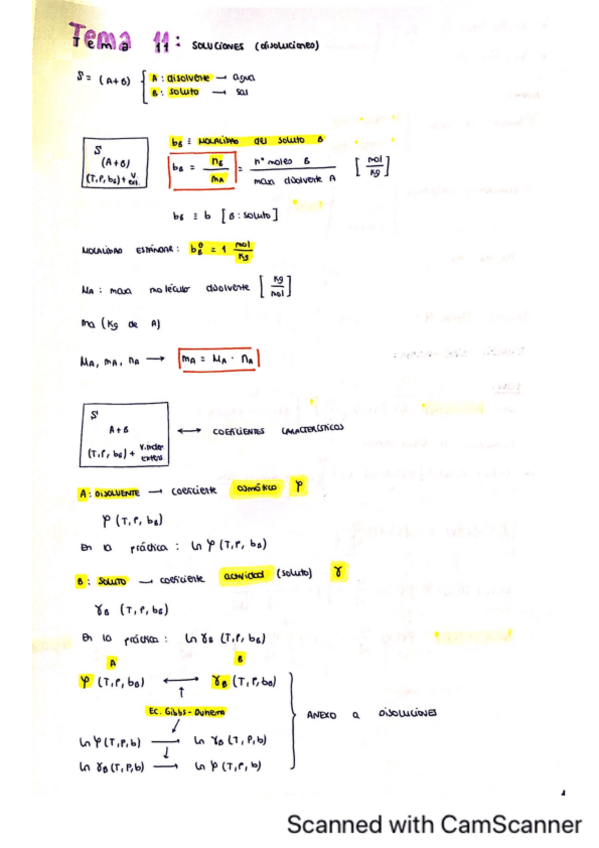 Tema 11: SOLUCIONES (disoluciones)
S = (A+B) { A: disolvente → agua
B: soluto → sal
b_B ≡ MOLALIDAD del soluto B
S
(A+B)
(T,P,b_B) + V. ext.
b_B = n_B / m_A = nº moles B / masa disolvente A [mol/kg]
b_B ≡ b [B: soluto]
MOLALIDAD ESTÁNDAR: b_B^θ = 1 mol/kg
M_A: masa molécular disolvente [kg/mol]
m_A (kg de A)
M_A, m_A, n_A → m_A = M_A · n_A
S
A+B
(T,P,b_B) + V. indep extern
↔ COEFICIENTES CARACTERÍSTICOS
A: DISOLVENTE → coeficiente osmótico φ
φ (T,P,b_B)
En la práctica: ln φ (T,P,b_B)
B: SOLUTO → coeficiente actividad (soluto) γ
γ_B (T,P,b_B)
En la práctica: ln γ_B (T,P,b_B)
A B
φ (T,P,b_B) ↔ γ_B (T,P,b_B)
↑
EC. Gibbs-Duhem
ANEXO a DISOLUCIONES
ln φ (T,P,b) → ln γ_B (T,P,b)
ln γ_B (T,P,b) → ln φ (T,P,b)
1
Scanned with CamScanner